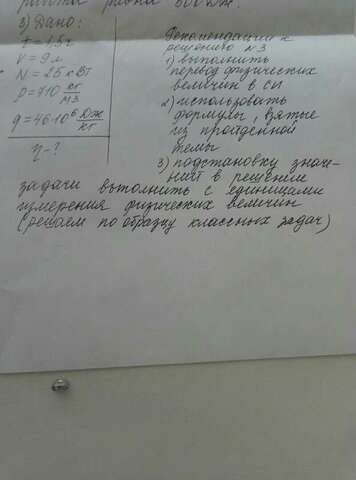 работа равна 500 Дж.
3) Дано:
t = 1,5 ч
V = 9 л
N = 25 кВт
ρ = 710 кг/м3
q = 46·10⁶ Дж/кг
η - ?
Рекомендации к
решению №3
1) выполнить
перевод физических
величин в си
2) использовать
формулы, взятые
из пройденной
темы
3) подстановку значе-
ний в решении
задачи выполнить с единицами
измерения физических величин
(решаем по образцу классных задач)